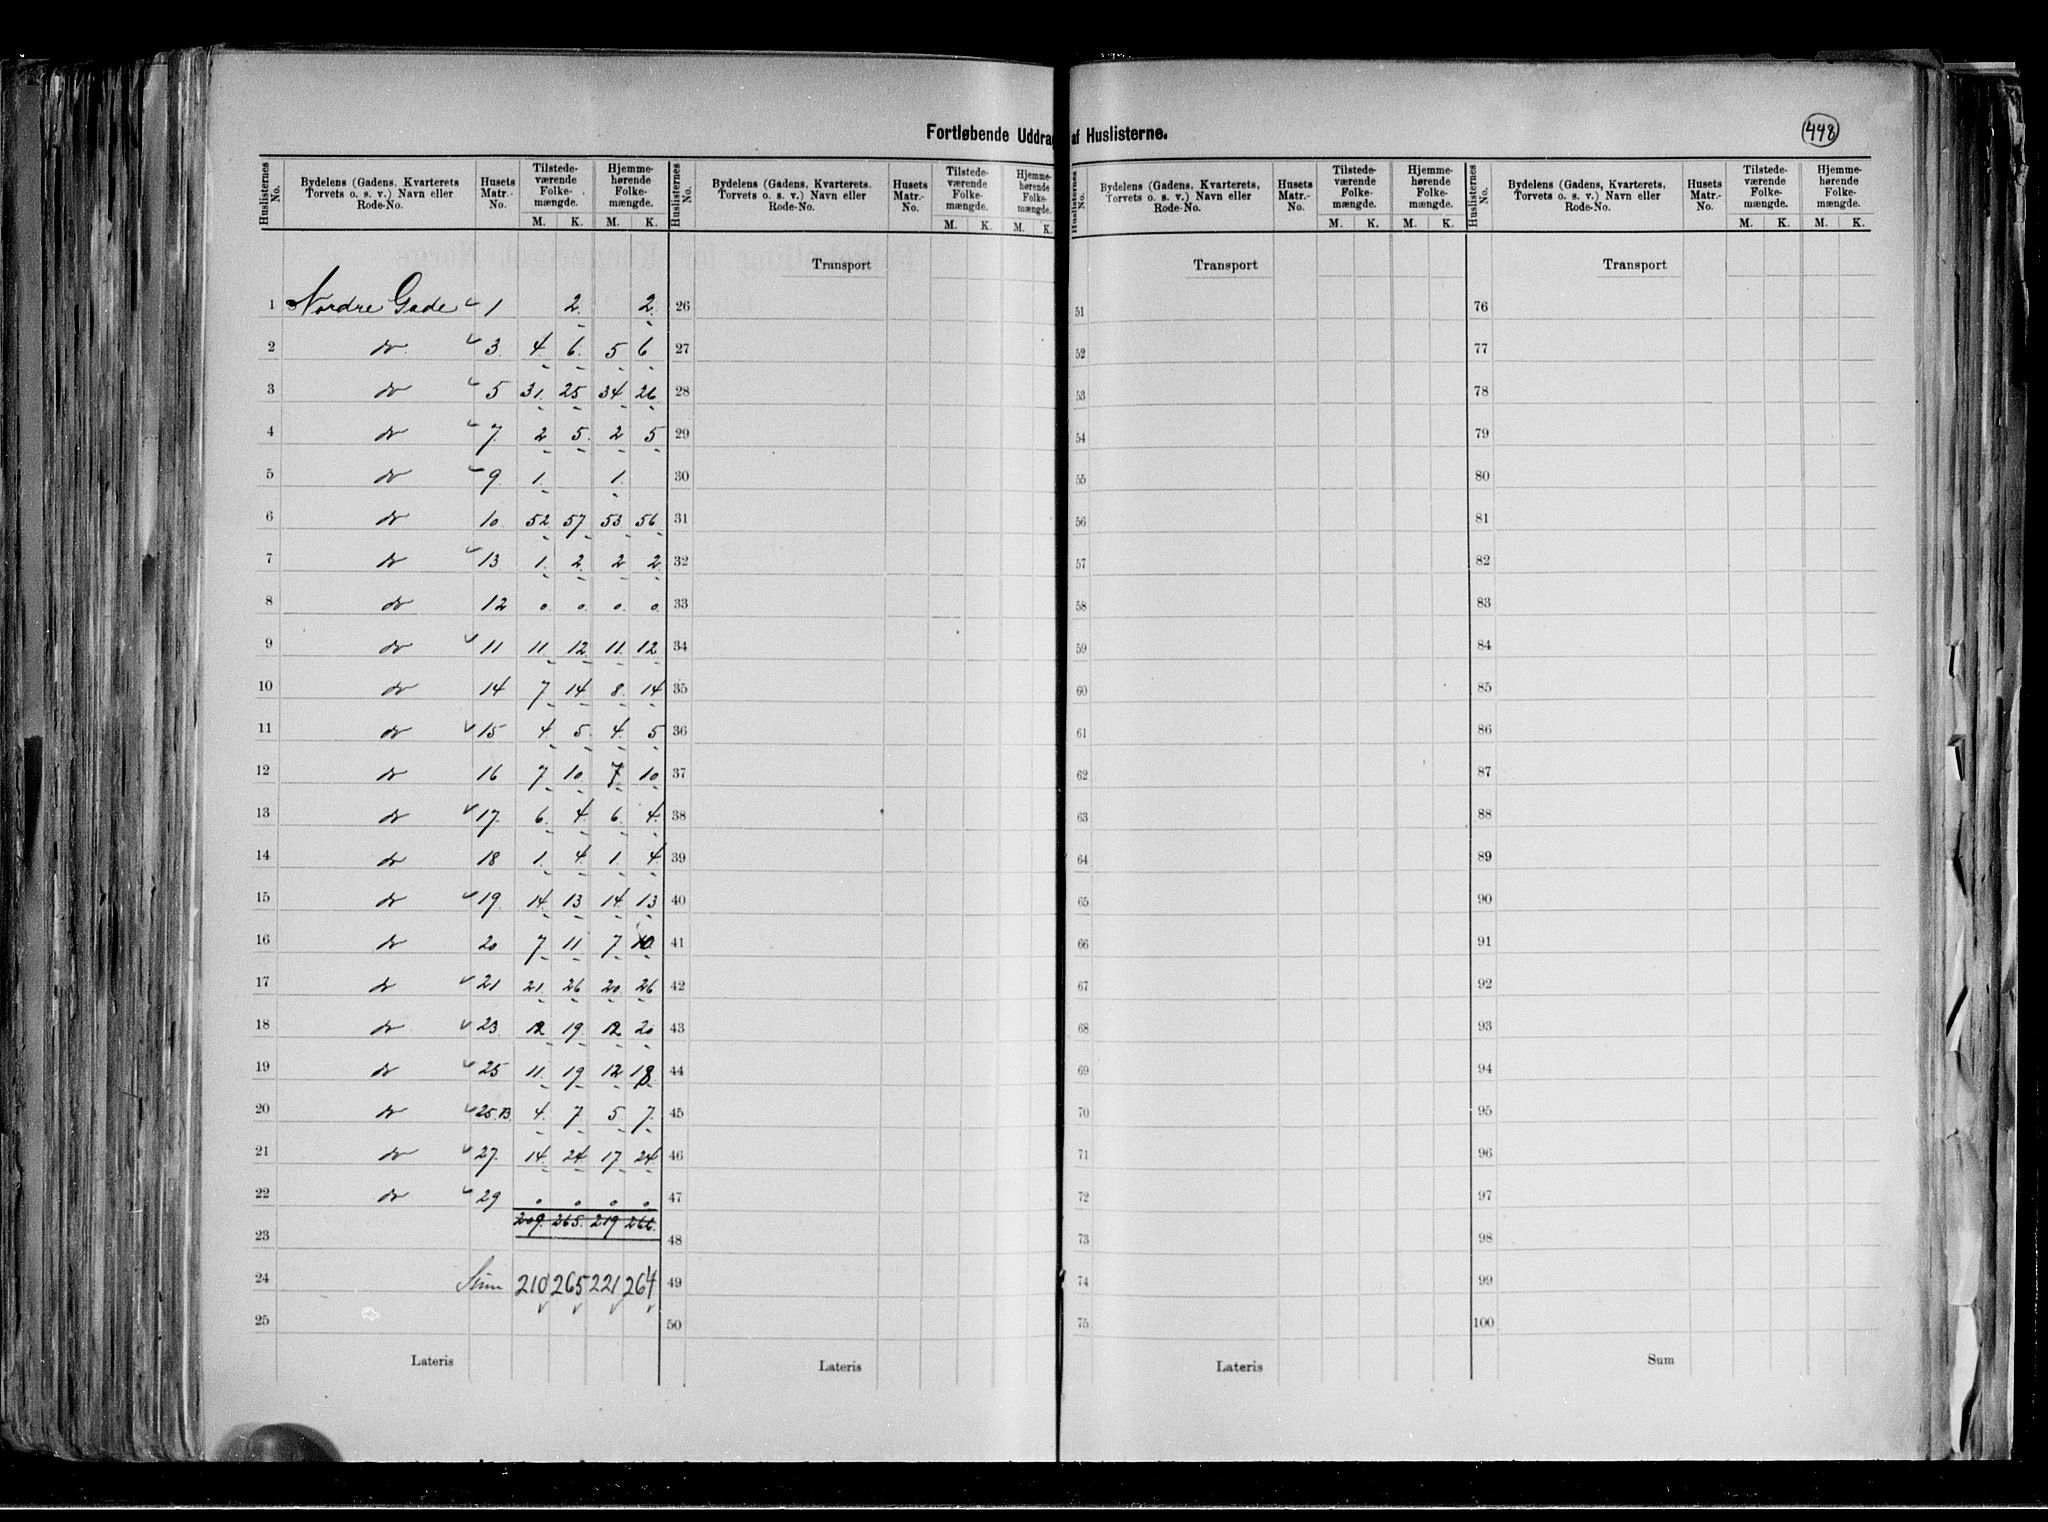 Fortløbende Uddrag af Huslisterne.
448
Huslisternes No. | Bydelens (Gadens, Kvarterets Torvets o. s. v.) Navn eller Rode-No. | Husets Matr.-No. | Tilstedeværende Folkemængde. M. K. | Hjemmehørende Folkemængde. M. K.
Huslisternes No. | Bydelens (Gadens, Kvarterets, Torvets o. s. v.) Navn eller Rode-No. | Husets Matr.-No. | Tilstedeværende Folkemængde. M. K. | Hjemmehørende Folkemængde. M. K.
Huslisternes No. | Bydelens (Gadens, Kvarterets, Torvets o. s. v.) Navn eller Rode-No. | Husets Matr.-No. | Tilstedeværende Folkemængde. M. K. | Hjemmehørende Folkemængde. M. K.
Huslisternes No. | Bydelens (Gadens, Kvarterets, Torvets o. s. v.) Navn eller Rode-No. | Husets Matr.-No. | Tilstedeværende Folkemængde. M. K. | Hjemmehørende Folkemængde. M. K.
Transport Transport Transport
1 Nordre Gade 1 2 2 26 51 76
2 do 3 4 6 5 6 27 52 77
3 do 5 31 25 34 26 28 53 78
4 do 7 2 5 2 5 29 54 79
5 do 9 1 1 30 55 80
6 do 10 52 57 53 56 31 56 81
7 do 13 1 2 2 2 32 57 82
8 do 12 0 0 0 0 33 58 83
9 do 11 11 12 11 12 34 59 84
10 do 14 7 14 8 14 35 60 85
11 do 15 4 5 4 5 36 61 86
12 do 16 7 10 7 10 37 62 87
13 do 17 6 4 6 4 38 63 88
14 do 18 1 4 1 4 39 64 89
15 do 19 14 13 14 13 40 65 90
16 do 20 7 11 7 10 41 66 91
17 do 21 21 26 20 26 42 67 92
18 do 23 12 19 12 20 43 68 93
19 do 25 11 19 12 18 44 69 94
20 do 25.B. 4 7 5 7 45 70 95
21 do 27 14 24 17 24 46 71 96
22 do 29 0 0 0 0 47 72 97
209. 265. 219 266.
23 48 73 98
24 Sum 210 265 221 264 49 74 99
25 50 75 100
Lateris Lateris Lateris Sum